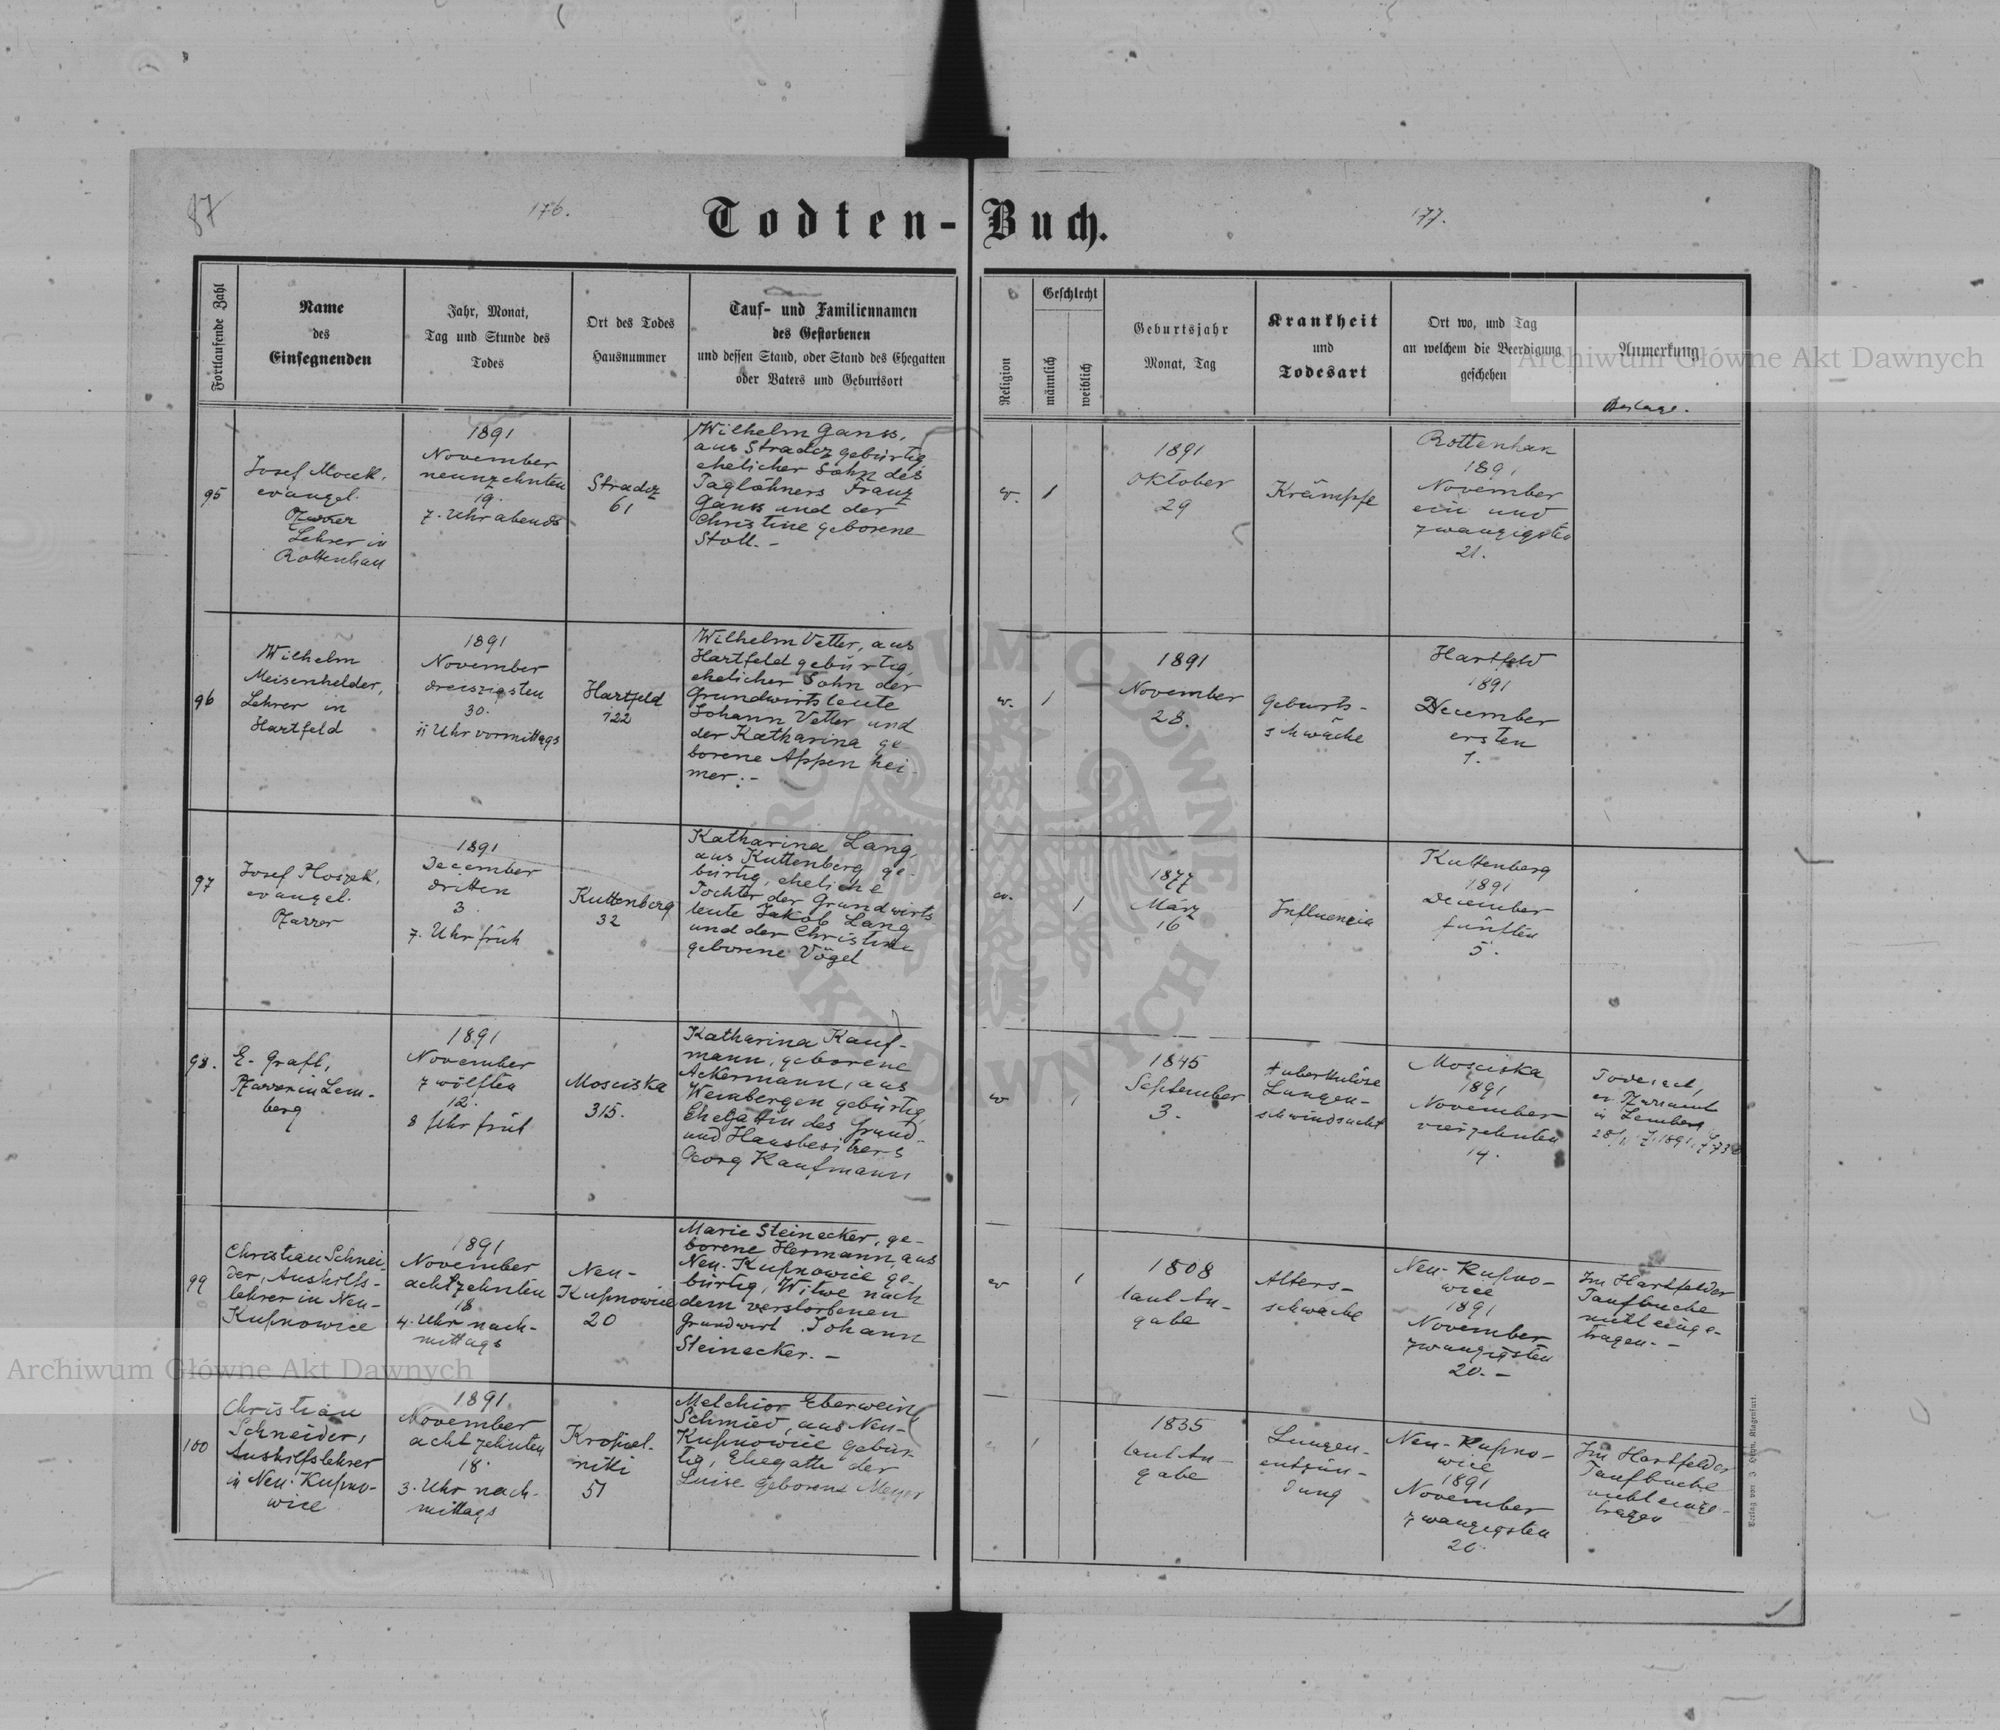 87
176.
Todten-Buch.
177.
Fortlaufende Zahl
Name
des
Einsegnenden
Jahr, Monat,
Tag und Stunde des
Todes
Ort des Todes
Hausnummer
Tauf- und Familiennamen
des Gestorbenen
und dessen Stand, oder Stand des Ehegatten
oder Vaters und Geburtsort
Religion
Geschlecht
männlich
weiblich
Geburtsjahr
Monat, Tag
Krankheit
und
Todesart
Ort wo, und Tag
an welchem die Beerdigung
geschehen
Anmerkung
Beilage.
95
Josef Mocek,
evangel.
Pfarrer
Lehrer in
Rottenhan
1891
November
neunzehnten
19.
7. Uhr abends
Stradcz
61
Wilhelm Ganss,
aus Stradcz gebürtig,
ehelicher Sohn des
Taglöhners Franz
Ganss und der
Christine geborene
Stoll. -
ev.
1
1891
Oktober
29
Krämpfe
Rottenhan
1891
November
ein und
zwanzigsten
21.
96
Wilhelm
Meisenhelder,
Lehrer in
Hartfeld
1891
November
dreiszigsten
30.
11 Uhr vormittags
Hartfeld
122
Wilhelm Vetter, aus
Hartfeld gebürtig,
ehelicher Sohn der
Grundwirtsleute
Johann Vetter und
der Katharina ge-
borene Appenhei-
mer. -
ev.
1
1891
November
28.
Geburts-
schwäche
Hartfeld
1891
December
ersten
1.
97
Josef Ploszek,
evangel.
Pfarrer
1891
December
dritten
3.
7. Uhr früh
Kuttenberg
32
Katharina Lang,
aus Kuttenberg ge-
bürtig, eheliche
Tochter der Grundwirts
leute Jakob Lang
und der Christine
geborene Vögel
ev.
1
1877
März
16
Influencia
Kuttenberg
1891
December
fünften
5.
98.
E. Grafl,
Pfarrer in Lem-
berg
1891
November
zwölften
12.
8 Uhr früh
Mosciska
315.
Katharina Kauf-
mann, geborene
Ackermann, aus
Weinbergen gebürtig,
Ehegattin des Grund-
und Hausbesitzers
Georg Kaufmann
ev
1
1845
September
3.
tuberkulöse
Lungen-
schwindsucht
Mosciska
1891
November
vierzehnten
14.
ev. Pfarramt
in Lemberg
99
Christian Schnei-
der, Aushilfs-
lehrer in Neu-
Kupnowice
1891
November
achtzehnten
18
4. Uhr nach-
mittags
Neu-
Kupnowice
20
Marie Steinecker, ge-
borene Hermann, aus
Neu-Kupnowice ge-
bürtig, Witwe nach
dem verstorbenen
Grundwirt Johann
Steinecker. -
ev
1
1808
laut An-
gabe
Alters-
schwäche
Neu-Kupno-
wice
1891
November
zwanzigsten
20. -
Im Hartfelder
Taufbuche
nicht einge-
tragen. -
100
Christian
Schneider,
Aushilfslehrer
in Neu-Kupno-
wice
1891
November
achtzehnten
18.
3. Uhr nach-
mittags
Kropiel-
niki
51
Melchior Eberwein,
Schmied, aus Neu-
Kupnowice gebür-
tig, Ehegatte der
Luise geborene Meyer
1
1835
laut An-
gabe
Lungen-
entzün-
dung
Neu-Kupno-
wice
1891
November
zwanzigsten
20.
Im Hartfelder
Taufbuche
nicht einge-
tragen
Archiwum Główne Akt Dawnych
Archiwum Główne Akt Dawnych
ARCHIWUM GŁÓWNE AKT DAWNYCH